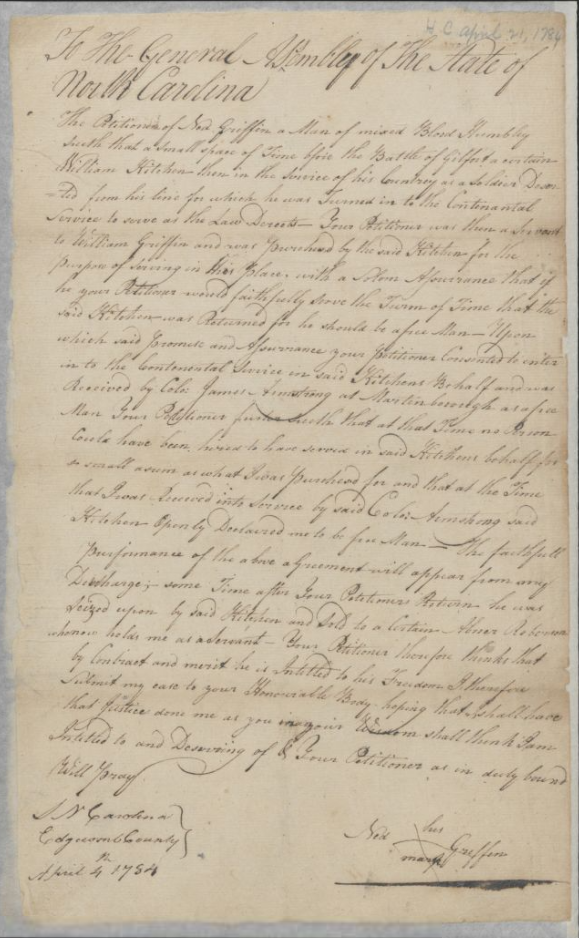 H. C. april 21, 1784
To The General Assembley of The State of
North Carolina
The Petitioner of Ned Griffin a Man of mixed Blood Humbley
Saeth that a Small space of Time bfore the Battle of Gilfort a certain
William Kitchen then in the Service of his Countrey as a Soldier Deser-
-ted from his line for which he was Turned in to the Continental
Service to serve as the Law Directs— Your Petitioner was then a Servant
to William Griffin and was purchesed by the said Kitchen for the
purpose of Serving in His place, with a Solom Assurance that if
he your Petitioner would faithfully serve the Turm of Time that the
said Kitchen was Returned for he should be a free Man— Upon
which said Promise and Assurance your Petitioner Consented to enter
in to the Continental Service in said Kitchens Behalf and was
Received by Colo: James Armstrong at Martinborough as a free
Man Your Petitioner furter saeth that at that Time no Person
Could have been hired to have served in said Kitchens behalf for
so small a sum as what I was Purchesed for and that at the Time
that I was Received into Service by said Colo: Armstrong said
Kitchen Openly Declaired me to be free Man— The faithfull
Purformance of the above agreement will appear from my
Discharge,— some Time after Your Petitioners Return he was
Seized upon by said Kitchen and Sold to a Certain Abner Roberson
who now holds me as a Servant— Your Petitioner therefore thinks that
by Contract and merit he is Intitled to his Freedom I therefore
Submit my case to your Honourable Body hoping that I shall have
that Justice done me as you in your Wisdom shall think I am
Intitled to and Deserving of & Your Petitioner as in duty bound
Will Pray
S N Carolina
Edgecomb County
April 4th 1784
Ned his Griffin
mark